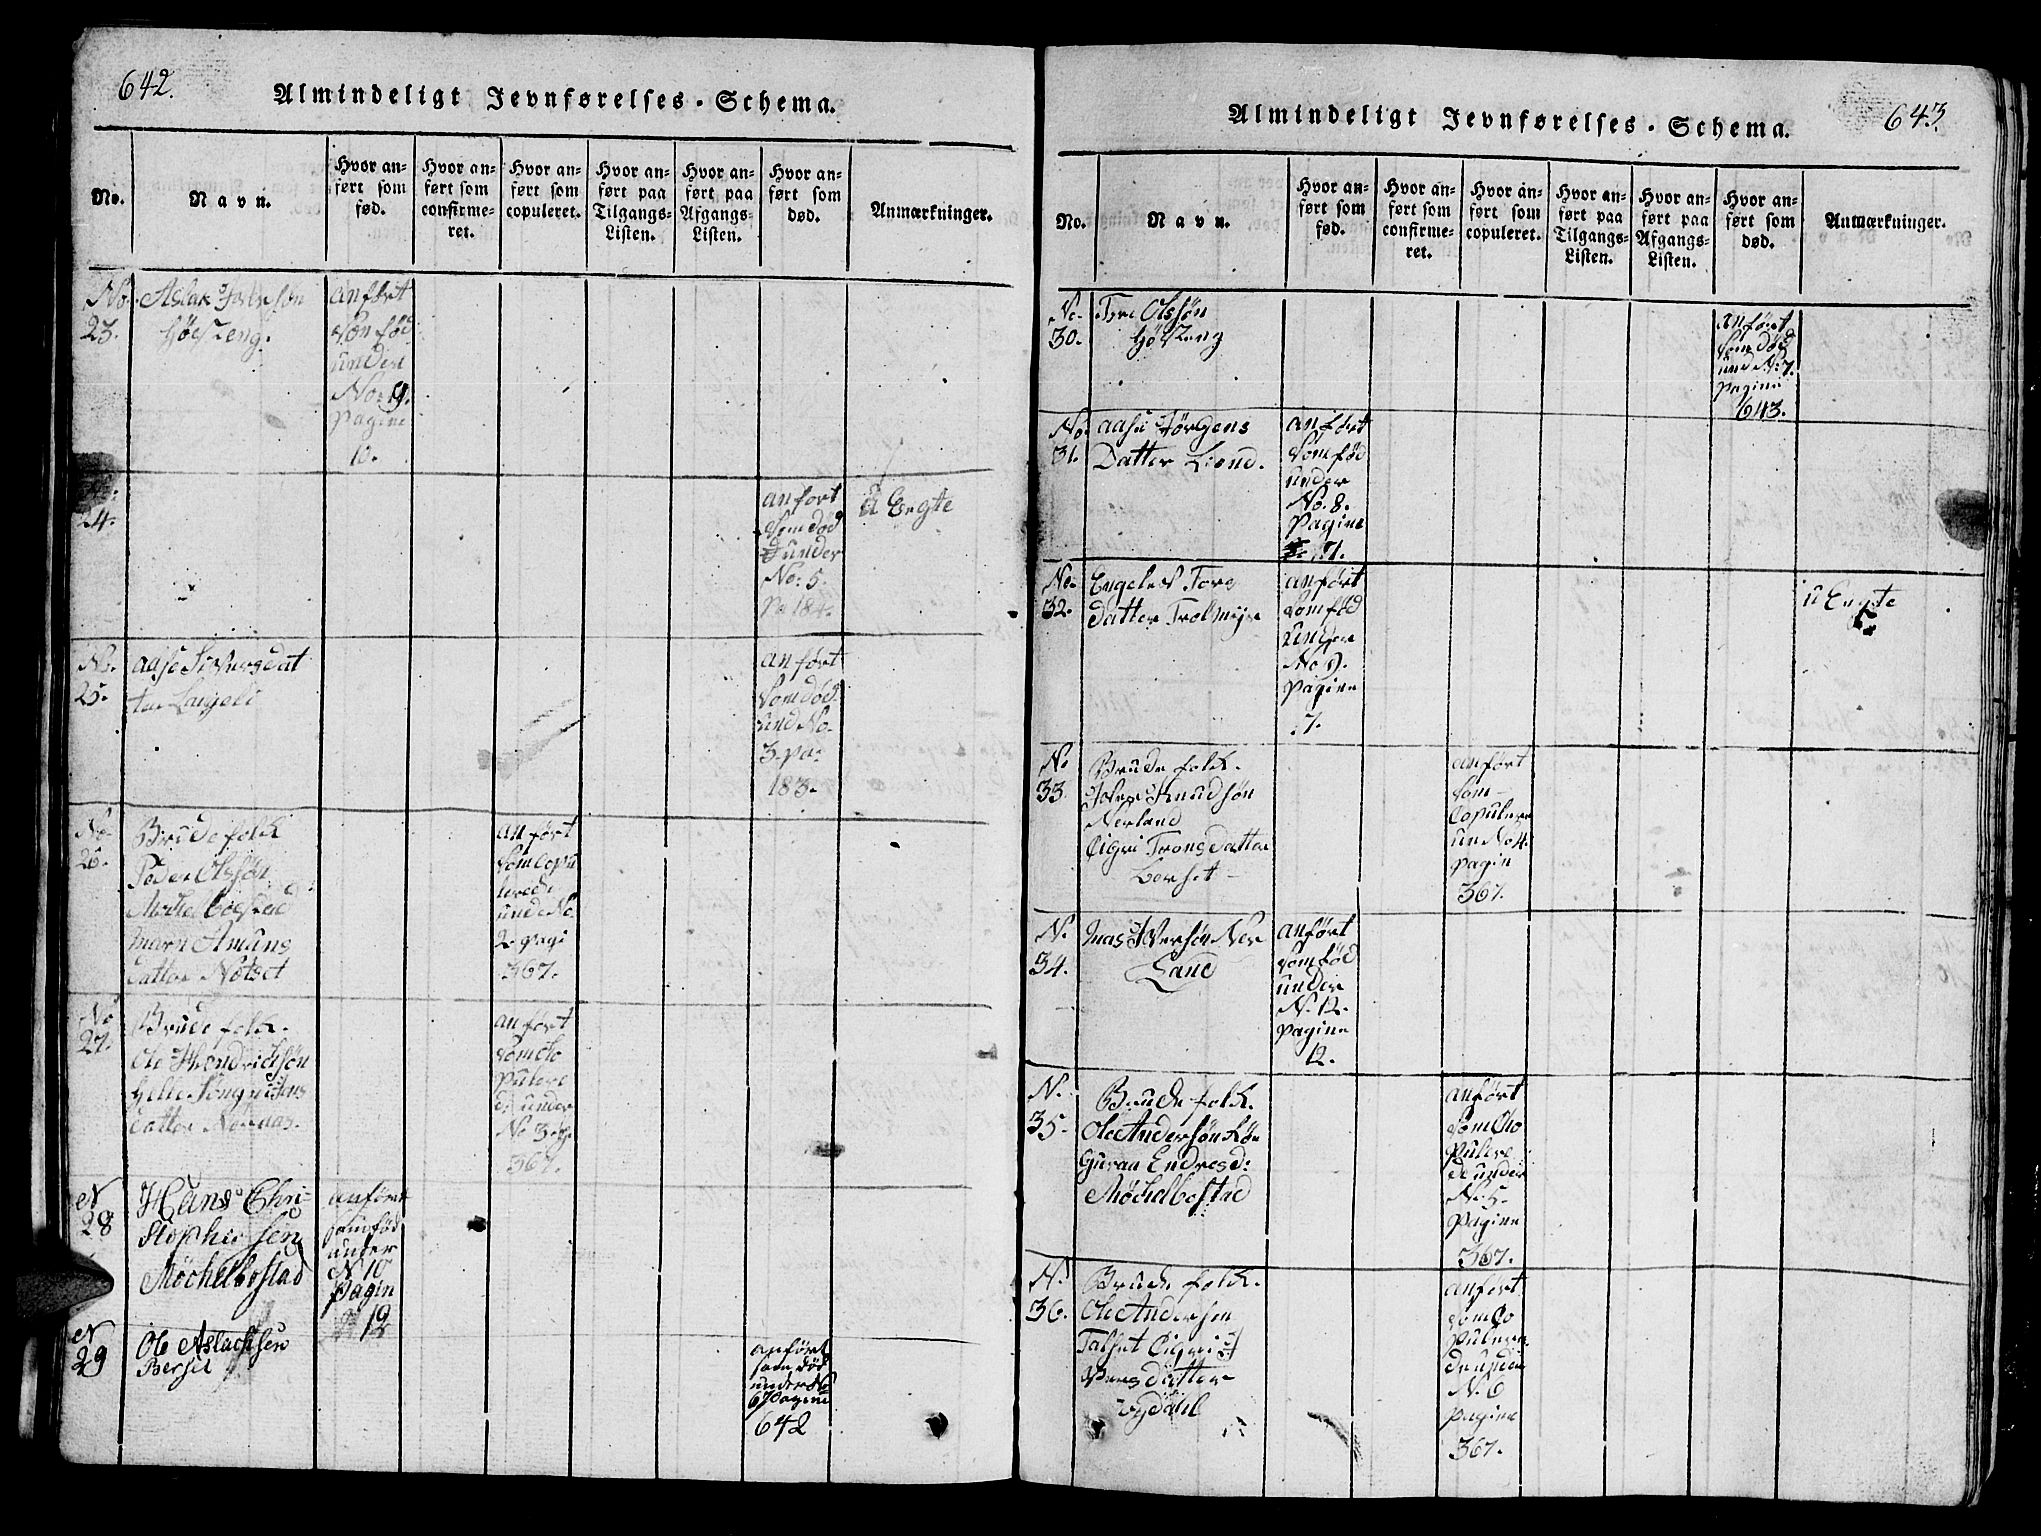 642.
Almindeligt Jevnførelses-Schema.
No.
Navn.
Hvor an-
ført som
fød.
Hvor an-
ført som
confirme-
ret.
Hvor an-
ført som
copuleret.
Hvor an-
ført paa
Tilgangs-
Listen.
Hvor an-
ført paa
Afgangs-
Listen.
Hvor an-
ført som
død.
Anmærkninger.
No.
23.
Aslak
anført
som fød
under
No: 9.
pagina
10.
24.
anført
som død
under
No: 5.
Pa 184.
u Ergte
No.
25.
aase Siversdat
ter
anført
som død
und No.
3. pa:
183.
No
26.
Brude folk
Peder Olssøn
Amuns
datter
anført
som copu
lerede
unde No.
2. pagi
367.
No
27.
Brude folk.
Ole Hendrichsøn
datter
anført
som Co
pulere
de under
No 3. p.
367.
N
28
Hans Chri-
stophersen
Möchelbostad
anført
som fød
under
N 10
Pagin
12
N
29
Ole Aslachsen
Berset
anført
som død
under No
6 Pagina
642
643.
Almindeligt Jevnførelses-Schema.
No.
Navn.
Hvor an-
ført som
fød.
Hvor an-
ført som
confirme-
ret.
Hvor an-
ført som
copuleret.
Hvor an-
ført paa
Tilgangs-
Listen.
Hvor an-
ført paa
Afgangs-
Listen.
Hvor an-
ført som
død.
Anmærkninger.
No.
30.
Olssøn
anført
som død
und N: 7.
pagina
643.
No.
31.
aase Jørgens
Datter
anført
som fød
under
No. 8.
pagina
No.
32.
Tors
datter Trolmyr
anført
som fød
under
No 9.
pagina
7.
u Ergte
No
33.
Brude folk.
Iver Knudsøn
Nerland
Sigri Tronsdatter
Berset
anført
som
Copulere
un No 4.
pagin
367.
N.
34.
Iversøn Ner
Land
anført
som fød
under
N. 12.
pagina
12.
N.
35.
Brude folk.
Ole Andersøn
Guran Endresd:
Møchelbostad
anført
som Cho
pulere
de under
No 5.
pagina
367.
N.
36.
Brude folk.
Ole Andersen
Talset Sigri
datter
anført
som Co
pulere
de under
N. 6
pagina
367.